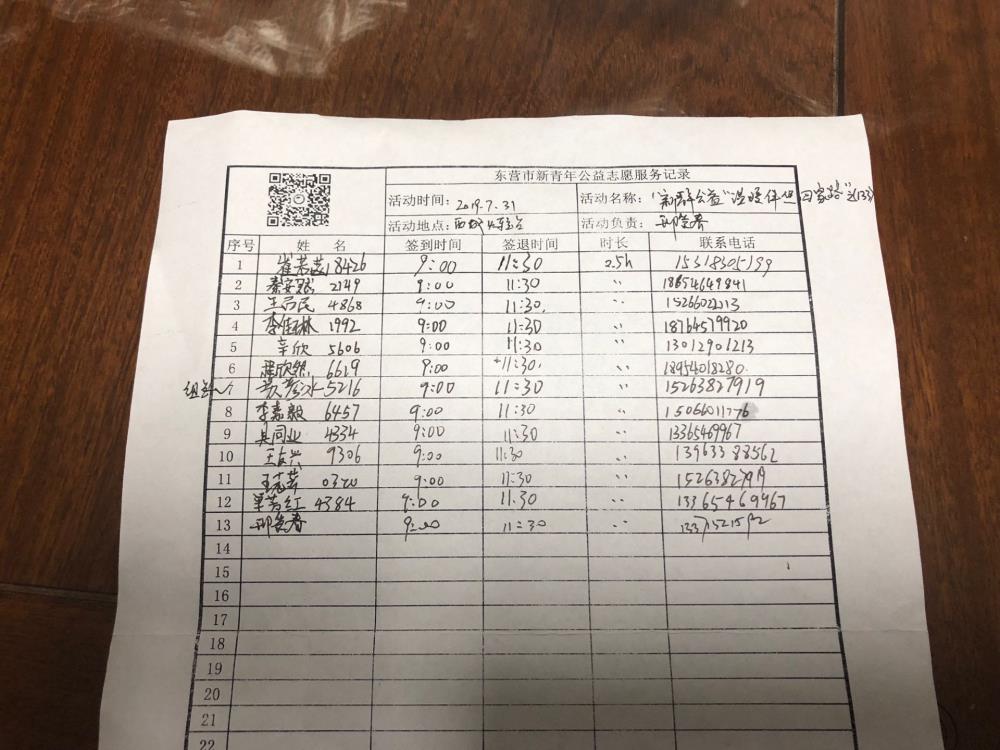 东营市新青年公益志愿服务记录
活动时间：2019.7.31 活动名称：
活动地点： 活动负责：
序号 姓 名 签到时间 签退时间 时长 联系电话
1 8426 9:00 11:30 2.5h 15318305199
2 2149 9:00 11:30 〃 18854649841
3 4868 9:00 11:30. 〃 15266022213
4 李佳琳 1992 9:00 11:30 〃 18764579920
5 辛欣 5606 9:00 11:30 〃 13012901213
6 6619 9:00 11:30. 〃 18954018280.
7 5216 9:00 11:30 〃 15263827919
8 李嘉毅 6457 9:00 11:30 〃 15066011776
9 吴同业 4334 9:00 11:30 〃 13365469967
10 王友兴 9306 9:00 11:30 〃 13963388562
11 9:00 11:30 〃
12 4384 9:00 11.30 〃 13365469967
13 9:00 11:30 〃
14
15
16
17
18
19
20
21
22